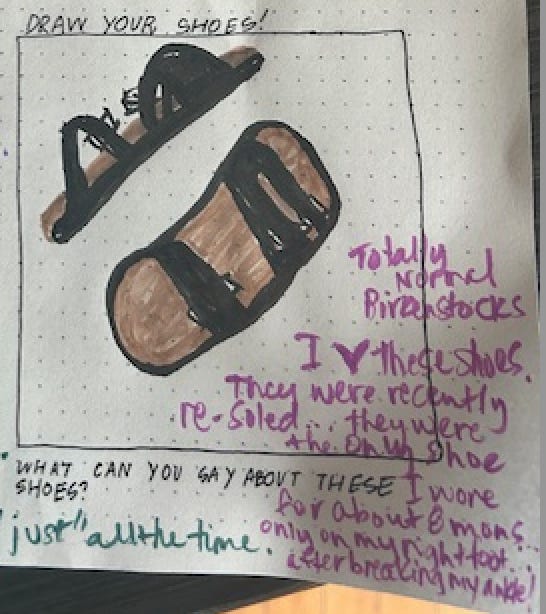 DRAW YOUR SHOES!
Totally
Normal
Birkenstocks
I ♥ these shoes.
They were recently
re-soled... they were
the only shoe
I wore
for about 8 mons...
only on my right foot...
after breaking my ankle!
WHAT CAN YOU SAY ABOUT THESE
SHOES?
"just" all the time.